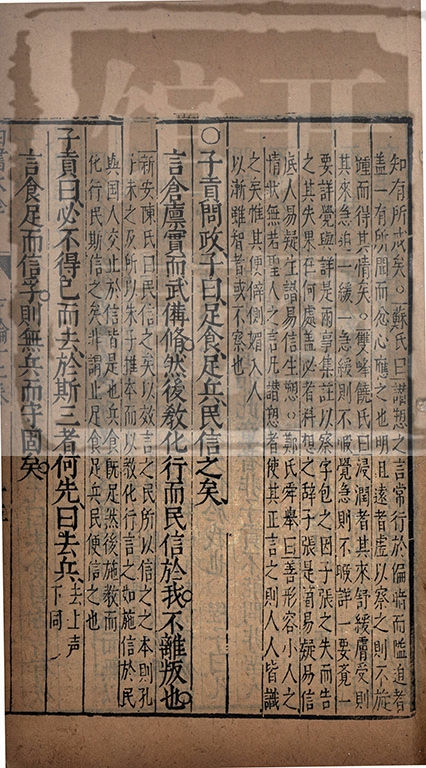 知有所戒矣。蘇氏曰譖愬之言常行於偏暗而隘迫者
蓋一有所聞而忿心應之也明且遠者虛以察之則不旋
踵而得其情矣。雙峰饒氏曰浸潤者其來舒緩膚受則
其來急迫一緩一急緩則不暇覺急則不暇詳一要覺一
要詳覺與詳是兩事集註以察字包之因子張之失而告
之其失果在何處蓋必者料想之辭子張是箇易疑易信
底人易疑生譖易信生愬。鄭氏舜舉曰善形容小人之
情狀無若聖人之言凡譖愬者使其正言之則人人皆識
之矣惟其便僻側媚入人
以漸雖智者或不察
○子貢問政子曰足食足兵民信之矣
言倉廩實而武備脩然後教化行而民信於我不離叛也
新安陳氏曰民信之矣以效言之民所以信之之本則孔
子未之及所以朱子推本而以教化行言之如施信於民
與國人交止於信皆是也兵食既足然後施教而
化行民斯信之矣非謂止足食足兵民便信之也
子貢曰必不得已而去於斯三者何先曰去兵去上聲下同
言食足而信孚則無兵而守固矣